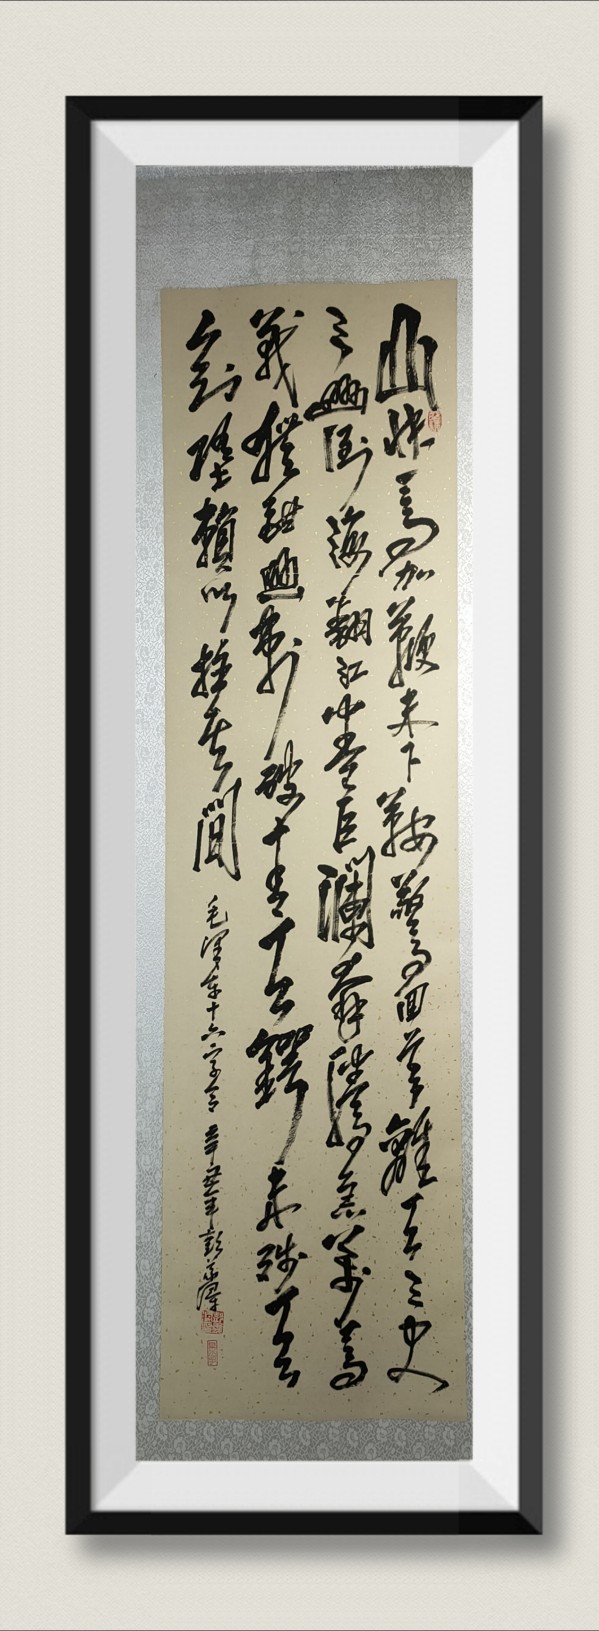 山快馬加鞭未下鞍驚回首離天三尺
三山倒海翻江卷巨瀾奔騰急萬馬
戰猶酣山刺破青天鍔未殘天
欲墮賴以拄其間
毛澤東十六字令 辛丑年彭